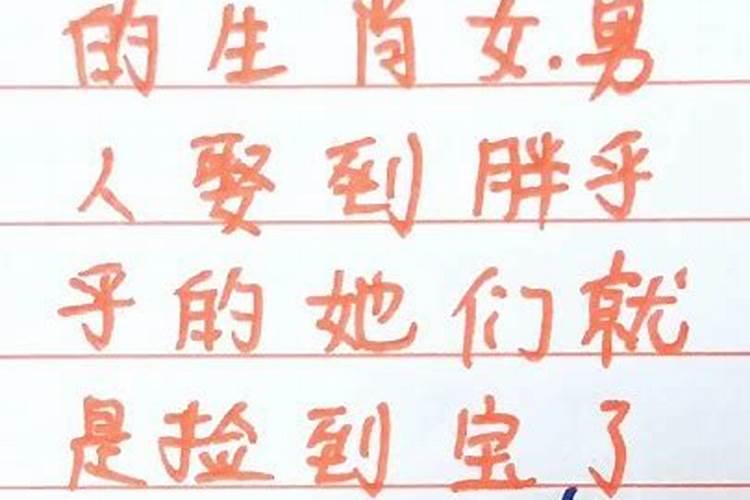 的生肖女.男
人娶到胖乎
乎的她们就
是捡到宝了